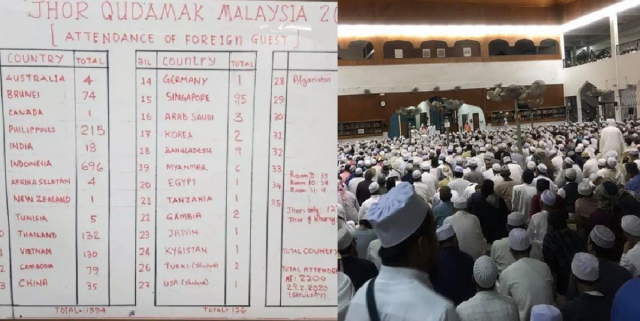 JHOR QUDAMAK MALAYSIA 20
[ ATTENDANCE OF FOREIGN GUEST ]
COUNTRY TOTAL
AUSTRALIA 4
BRUNEI 74
CANADA 1
PHILIPPINES 215
INDIA 13
INDONESIA 696
AFRIKA SELATAN 4
NEW ZEALAND 1
TUNISIA 5
THAILAND 132
VIETNAM 130
CAMBODIA 79
3 CHINA 35
TOTAL= 1594
BIL COUNTRY TOTAL
14 GERMANY 1
15 SINGAPORE 95
16 ARAB SAUDI 3
17 KOREA 2
18 BANGLADESH 9
19 MYANMAR 6
20 EGYPT 1
21 TANZANIA 1
22 GAMBIA 2
23 JAPAN 1
24 KYGISTAN 1
26 TURKI 2
27 USA 1
TOTAL= 126
28 Afganistan
29
30
31
32
33
34
35
Room 8: 35
Room 10: 34
Room 11: 9
TOTAL COUNTRY
TOTAL ATTENDEN
AT: 2200
29.2.2020
(SATURDAY)